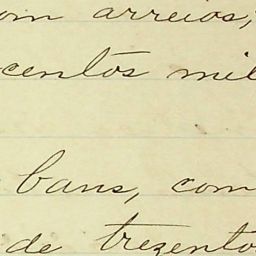 om arreios,
centos mil
bans, com
de trezento